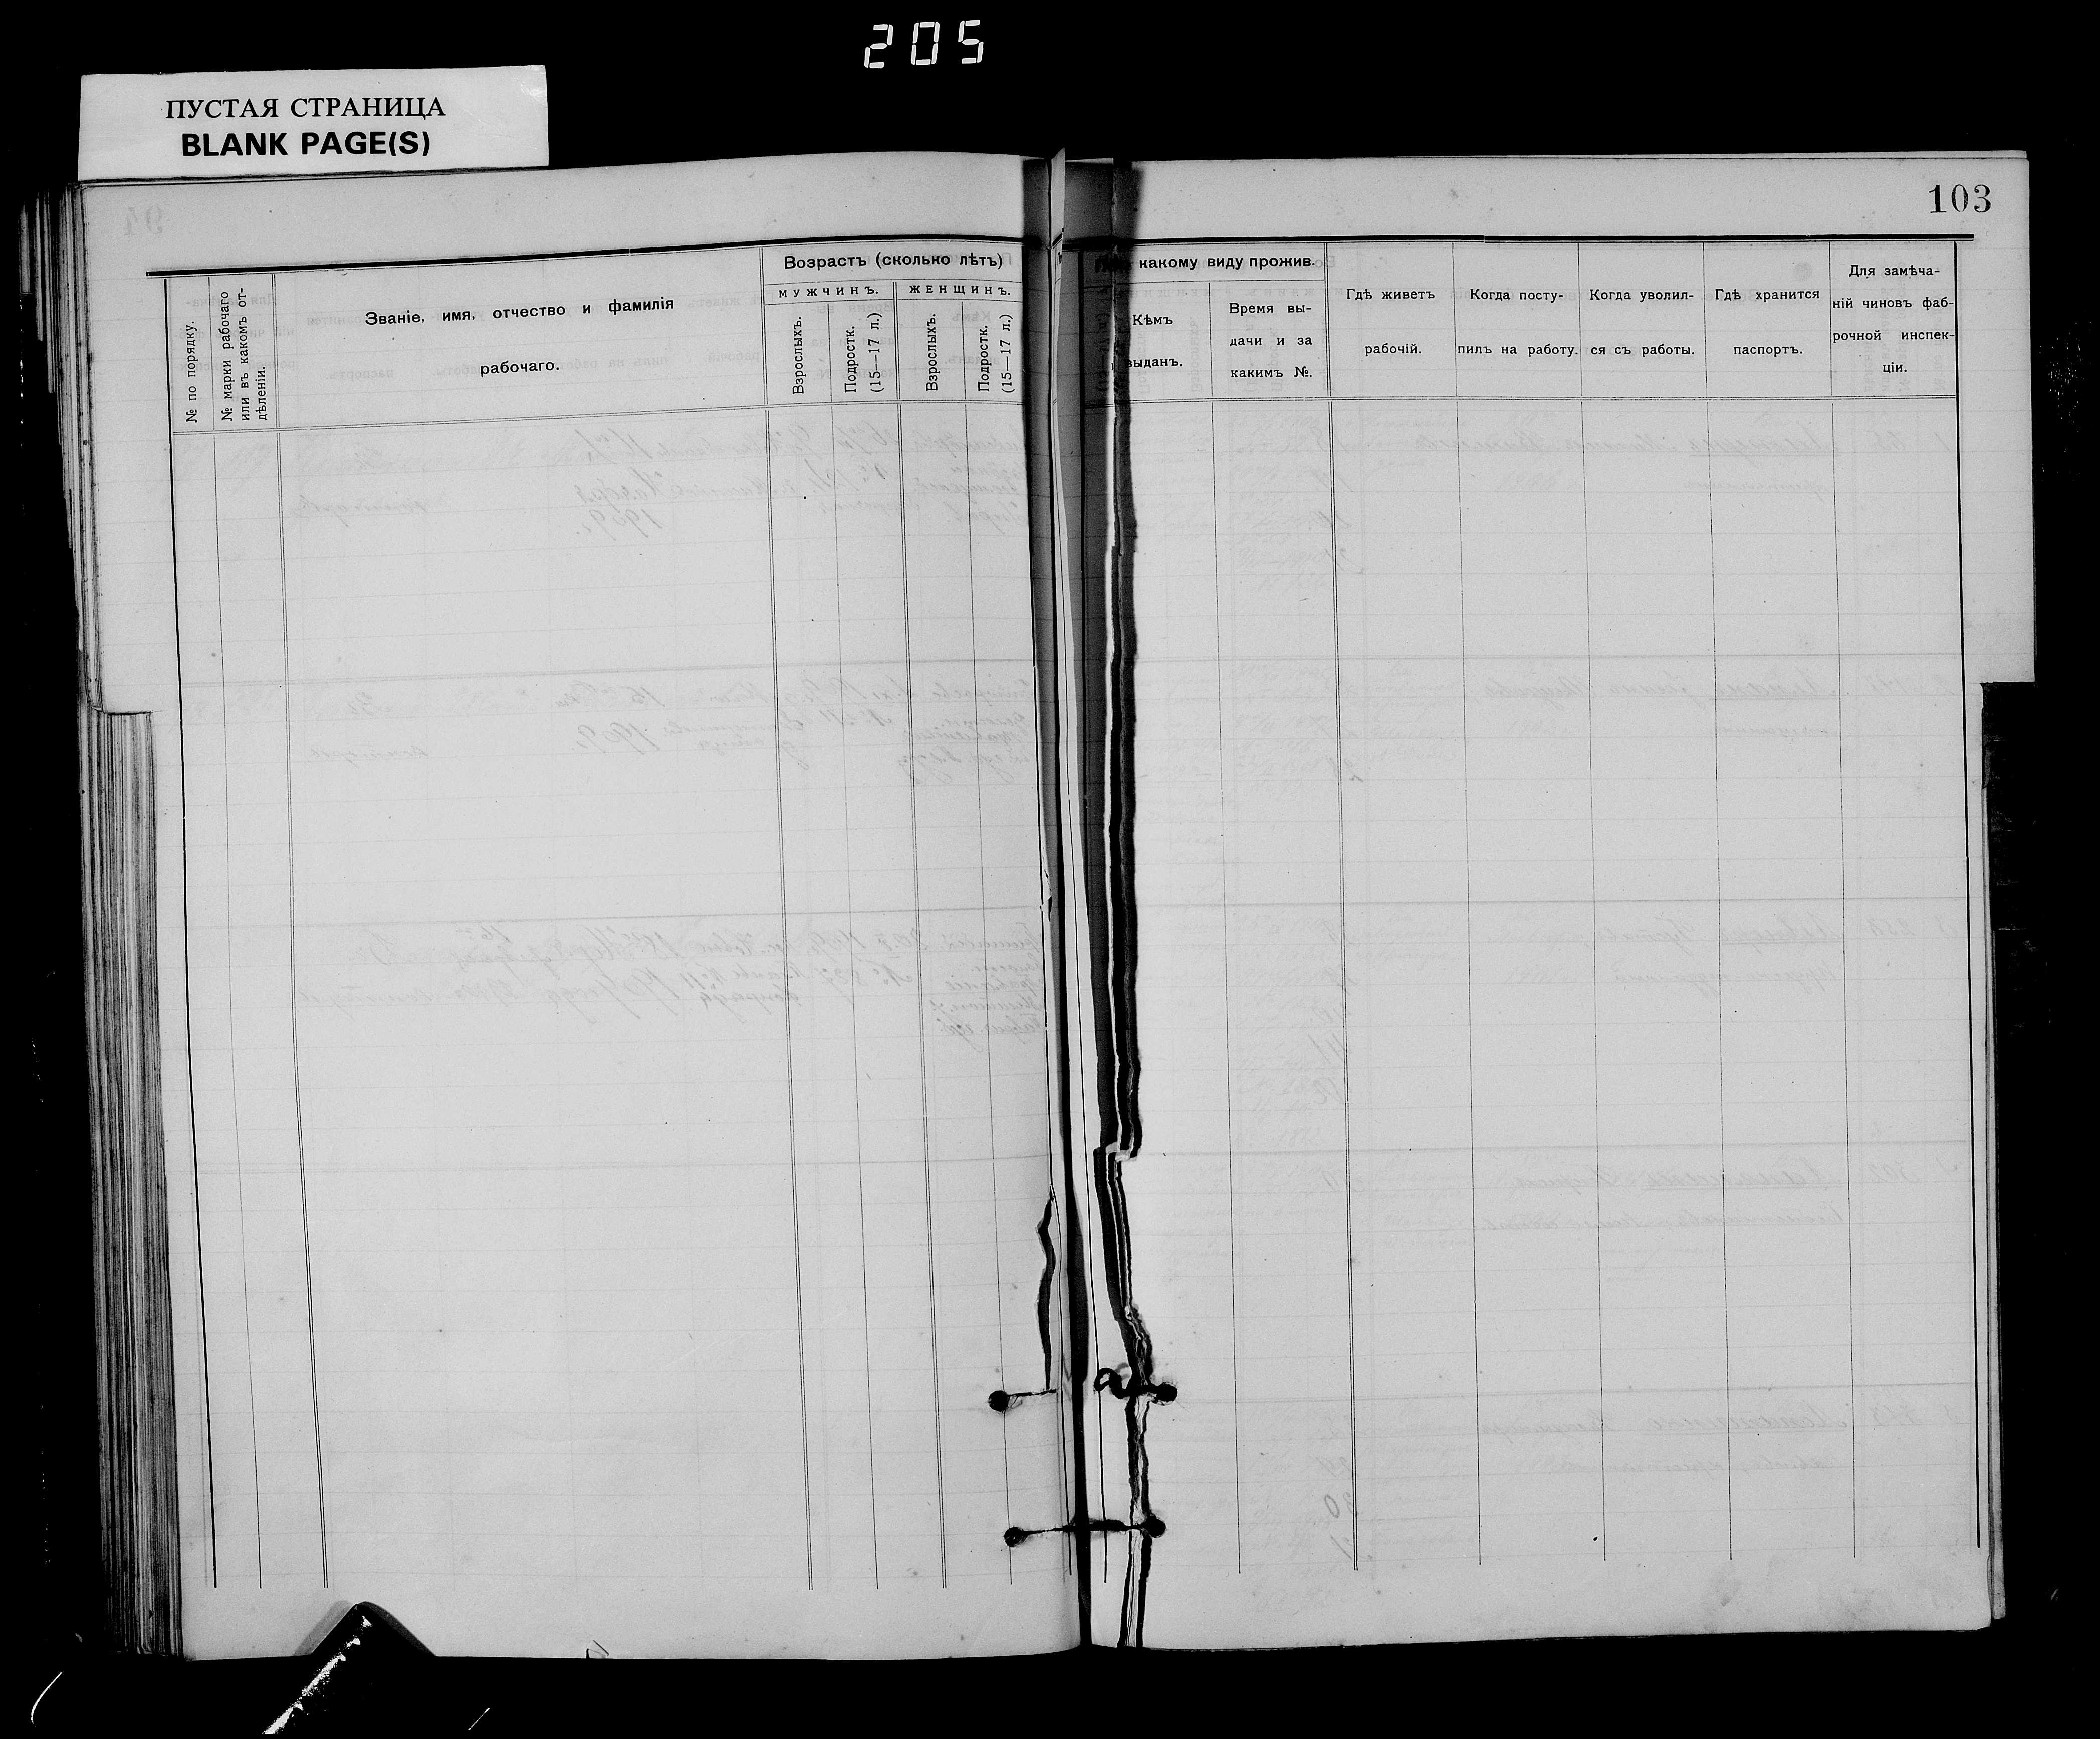 205
ПУСТАЯ СТРАНИЦА
BLANK PAGE(S)
103
№ по порядку.
№ марки рабочаго
или въ какомъ от-
дѣленіи.
Званіе, имя, отчество и фамилія
рабочаго.
Возрастъ (сколько лѣтъ)
МУЖЧИНЪ.
ЖЕНЩИНЪ.
Взрослыхъ.
Подростк.
(15—17 л.)
Взрослыхъ.
Подростк.
(15—17 л.)
какому виду прожив.
Кѣмъ
выданъ.
Время вы-
дачи и за
какимъ №.
Гдѣ живетъ
рабочій.
Когда посту-
пилъ на работу.
Когда уволил-
ся съ работы.
Гдѣ хранится
паспортъ.
Для замѣча-
ній чиновъ фаб-
рочной инспек-
ціи.